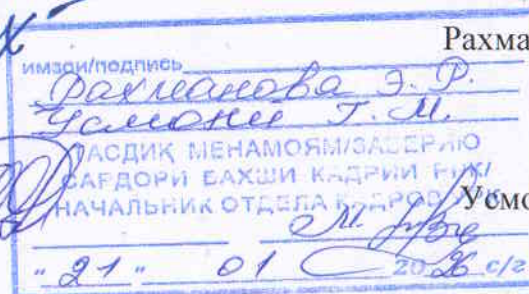 Рахма
имзои/подпись
Рахманова Э. Р.
Усмони Т. М.
ТАСДИҚ МЕНАМОЯМ/ЗАВЕРЯЮ
САРДОРИ БАХШИ КАДРИИ
НАЧАЛЬНИК ОТДЕЛА КАДРОВ
Усмо
"21" 01 2026 с/г